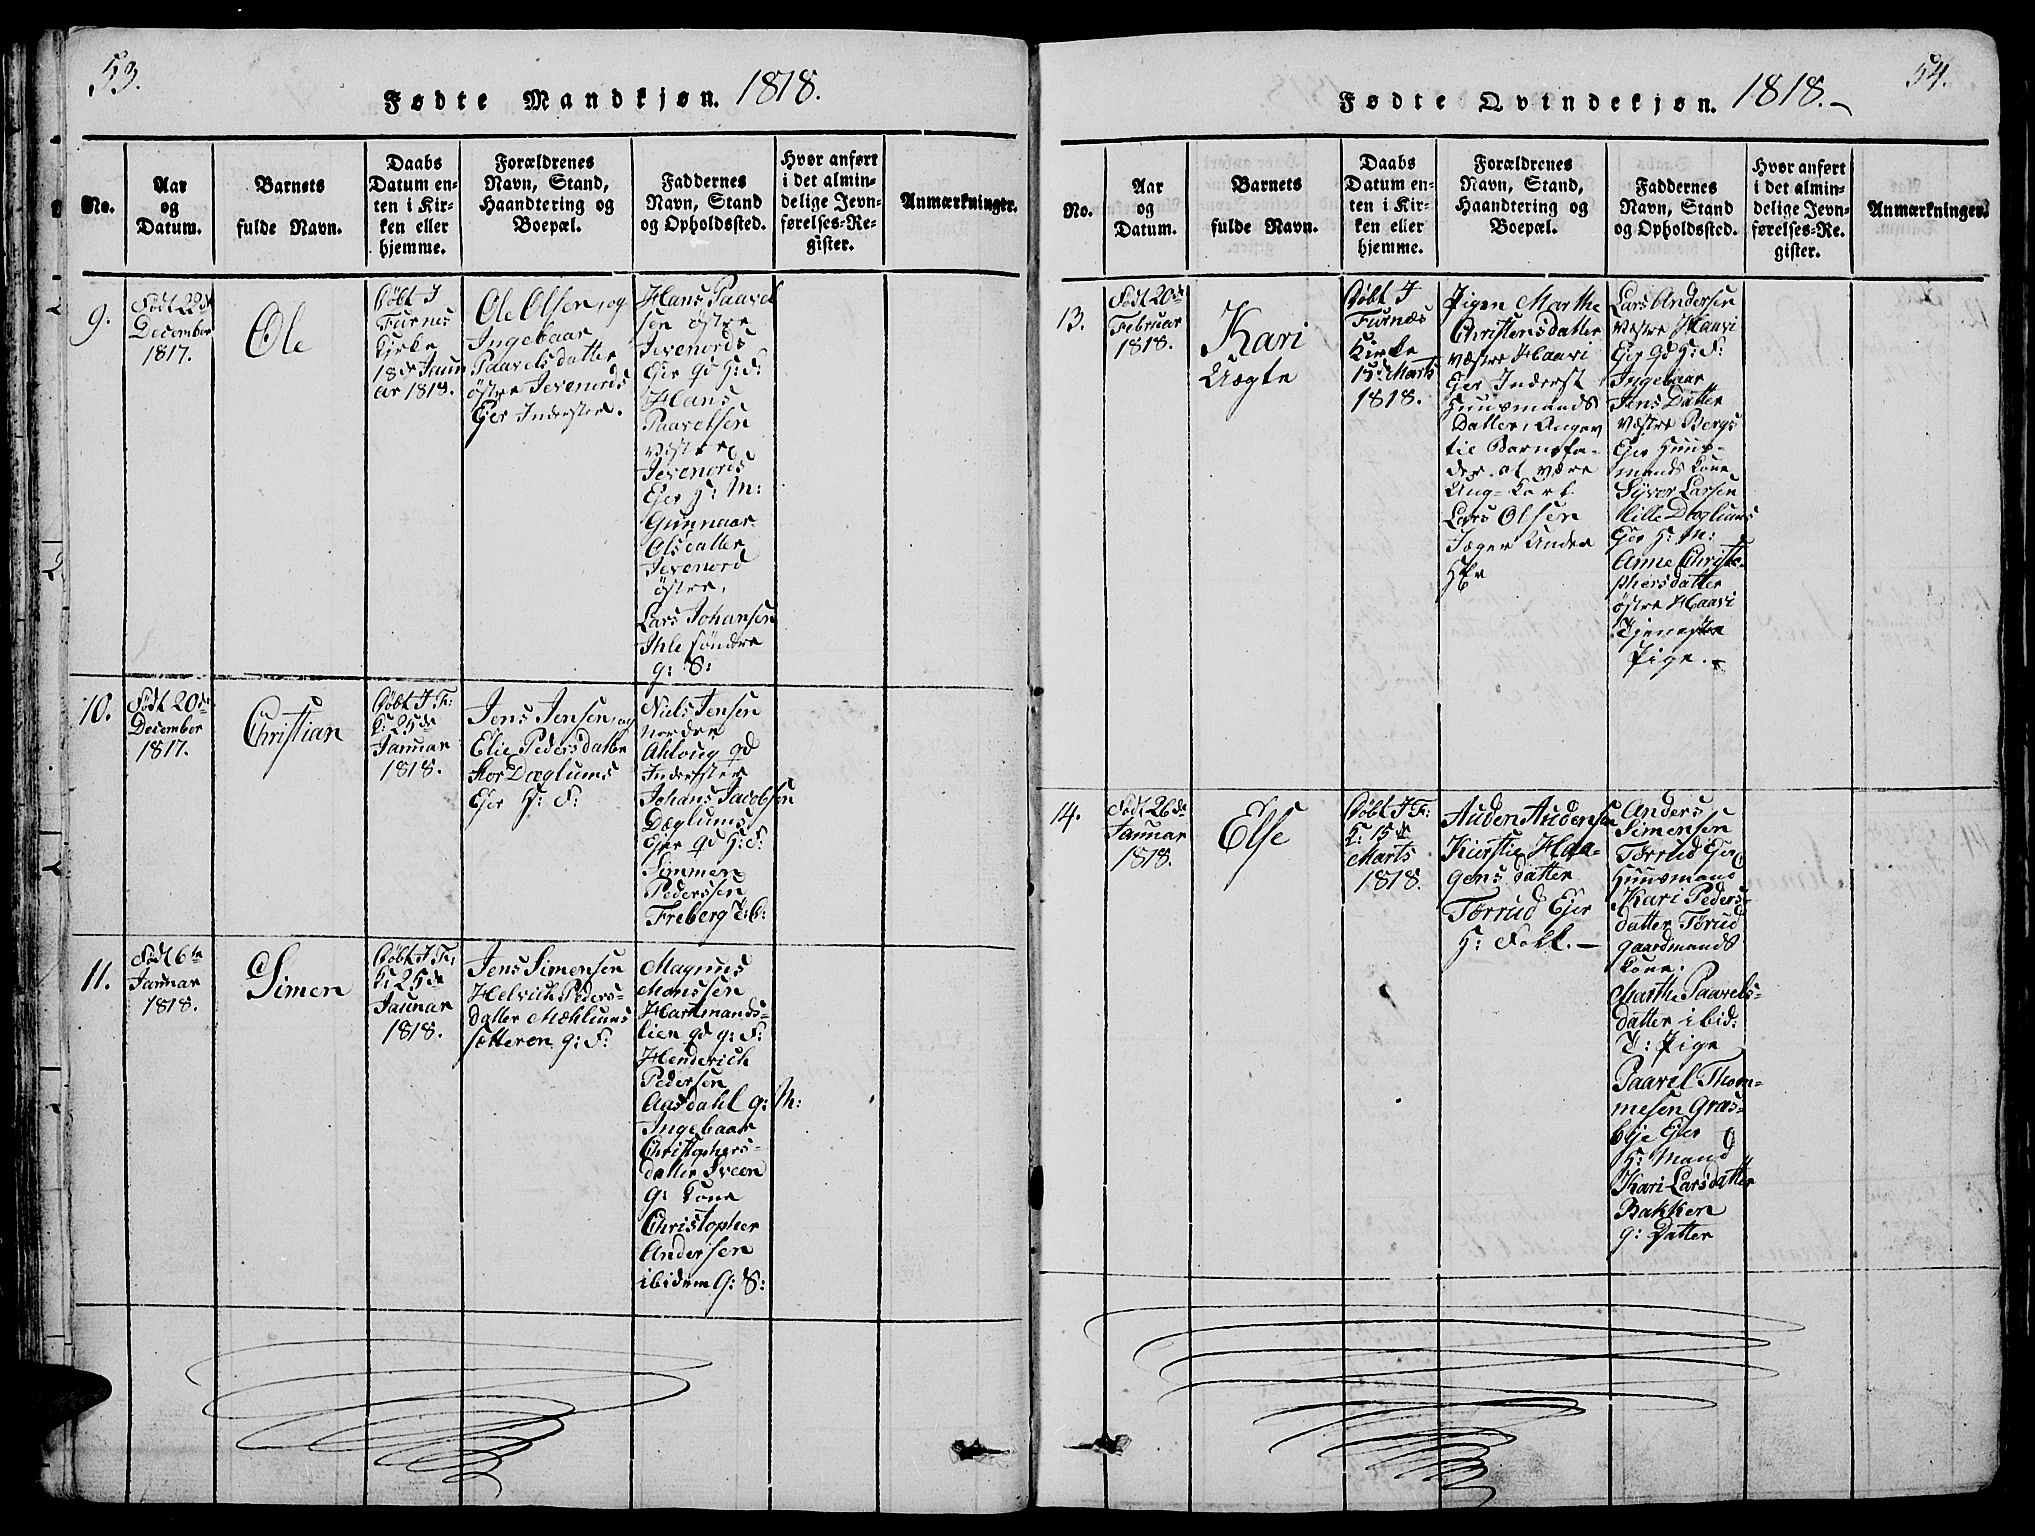 53.
Fødte Mandkjøn. 1818.
No.
Aar
og
Datum.
Barnets
fulde Navn.
Daabs
Datum en-
ten i Kir-
ken eller
hjemme.
Forældrenes
Navn, Stand,
Haandtering og
Boepæl.
Faddernes
Navn, Stand
og Opholdssted.
Hvor anført
i det almin-
delige Jevn-
førelses-Re-
gister.
Anmærkninger.
9.
Født 22de
December
1817.
Ole
Døbt I
Furnes
Kirke
18de Janu
ar 1818.
Ole Olsen, og
Ingebaar
Paavelsdatter
østre Jevenords
Ejer Inderster.
Hans Paavel
sen østre
Jevenords
Ejer qd H: F:
Hans
Paavelsen
vestre
Jevenords
Ejer H: M:
Gunnaar
Olsdatter
Jevenord
østre,
Lars Johansen
Ihle søndre
g: S:
10.
Født 20de
December
1817.
Christian
Døbt I F:
K: 25de
Januar
1818.
Jens Jensen, og
Elie Pedersdatter
Stor Dæglums
Ejer H: F:
Niels Jensen
nordre
Ahloug qd
Inderster
Johans Jacobsen
Dæglums
Ejer qd H: F:
Simmen
Pederssen
Freberg T: C:
11.
Født 6te
Januar
1818.
Simen
Døbt I F:
K: 25de
Januar
1818.
Jens Simensen
Helvich Peders-
datter Mæhlums
sætteren g: F:
Magnus
Monssen
Hartmands-
lien qd g: F:
Henderich
Pedersen
Aasdahl g: M:
Ingebaar
Christophers-
datter Sveen
g: Kone
Christopher
Andersen
ibidem G: S:
54.
Fødte Qvindekjøn. 1818.-
No.
Aar
og
Datum.
Barnets
fulde Navn.
Daabs
Datum en-
ten i Kir-
ken eller
hjemme.
Forældrenes
Navn, Stand,
Haandtering og
Boepæl.
Faddernes
Navn, Stand
og Opholdssted.
Hvor anført
i det almin-
delige Jevn-
førelses-Re-
gister.
Anmærkninger.
13.
Født 20de
Februar
1818.
Kari
Uægte
Døbt I
Furnæs
Kirke
15de Marts
1818.
Pigen Marthe
Christensdatter
væstre Haavi
Ejer Inderst
Huusmands
Datter, Angav
til Barnefa-
der at være
Ung-Karl
Lars Olsen
Jæger Under
Lars Andersen
væstre Haavi
Ejer qd H: F:
Ingebaar
Jens Datter
Væstre Bergs
Ejer Huus-
mands Kone
Syver Larsen
Lille Dæglums
Ejer H: M:
Anne Christo-
phersdatter
østre Haavi
Tjeneste
Pige.
14.
Født 26de
Januar
1818.
Else
Døbt I F:
K: 15de
Marts
1818.
Auden Audensen
Kierstie Haa-
gens datter
Tørrud Ejer
H: Folk. -
Anders
Simensen
Tørrud Ejer
Huusmand
Kari Peders-
datter Tørud
Gaardmands
Kone.
Marthe Paavels-
datter ibid:
T: Pige
Paavel Thom-
mesen Græs-
blje Ejer
H: Mand
Kari Larsdatter
Bakken
g: Datter